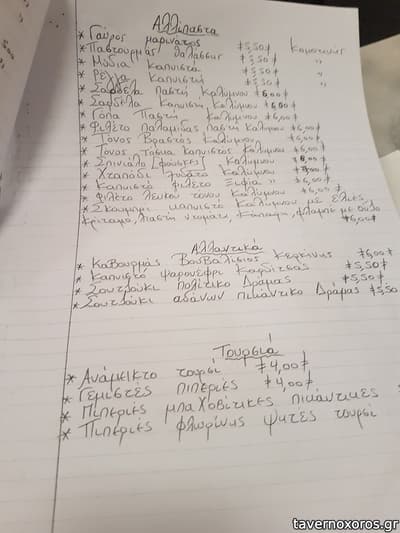 Αλλίπαστα
* Γαύρος μαρινάτος ≠5,50≠ Κομοτινης
* Παστουρμάς θαλάσσης ≠5,50≠ "
* Μύδια καπνιστά ≠5,50≠ "
* Ρέγγα καπνιστή ≠5,50≠
* Σαρδέλα παστή Καλύμνου ≠6,00≠
* Σαρδέλα καπνιστή Καλύμνου ≠6,00≠
* Γόπα Παστή Καλύμνου ≠6,00≠
* Φιλέτο Παλαμίδας παστή Καλύμνου ≠6,00≠
* Τόνος Βραστός Καλύμνου ≠6,00≠
* Τόνος καπνιστός Καλύμνου ≠6,00≠
* Σπινιάλο [φούσκες] Καλύμνου
* Χταπόδι Καλύμνου
* Καπνιστό φιλέτο Ξιφία " ≠6,00≠
* Φιλέτο λευκού τόνου Καλύμνου ≠6,00≠
* Σκουμπρι καπνιστό Καλύμνου με ελιές,
Κρίταμο, λιαστή ντομάτα, κάπαρη,
≠6,00≠
Αλλαντικά
* Καβουρμάς Βουβαλίσιος Κερκίνης ≠6,00≠
* Καπνιστό ψαρονέφρι Καρδίτσας ≠5,50≠
* Σουτζούκι πολίτικο Δράμας ≠5,50≠
* Σουτζούκι αδάνων πικάντικο Δράμας ≠5,50
Τουρσιά
* Ανάμεικτο τουρσί ≠4,00≠
* Γεμιστές πιπεριές ≠4,00≠
* Πιπεριές μπαχοβίτικες πικάντικες
* Πιπεριές φλωρίνης ψητές τουρσί
tavernoxoros.gr